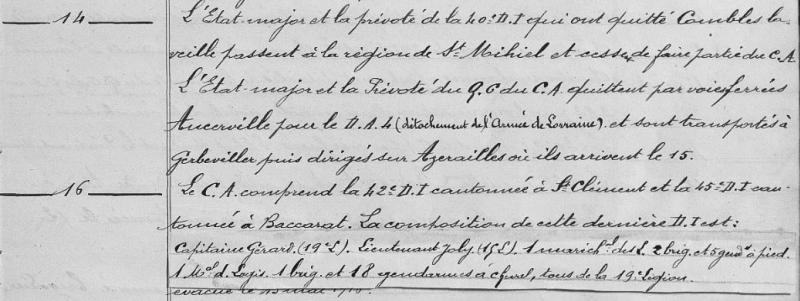 14 L'Etat-major et la prévoté de la 40e D.I qui ont quitté Combles la
veille passent à la région de St Mihiel et cessent de faire partie du C.A.
L'Etat-major et la Prévoté du Q.G du C.A. quittent par voies ferrées
Ancerville pour le D.A.L (détachement de l'Armée de Lorraine) et sont transportés à
Gerbeviller puis dirigés sur Azerailles où ils arrivent le 15.
16 Le C.A. comprend la 42e D.I cantonnée à St Clément et la 45e D.I can-
tonnée à Baccarat. La composition de cette dernière D.I est:
Capitaine Gérard (19e L). Lieutenant Joly (15e L). 1 march.al des L. 2 brig. et 5 gend. à pied.
1 Mal d. Logis. 1 brig. et 18 gendarmes à cheval, tous de la 19e Légion.
évacué le mai